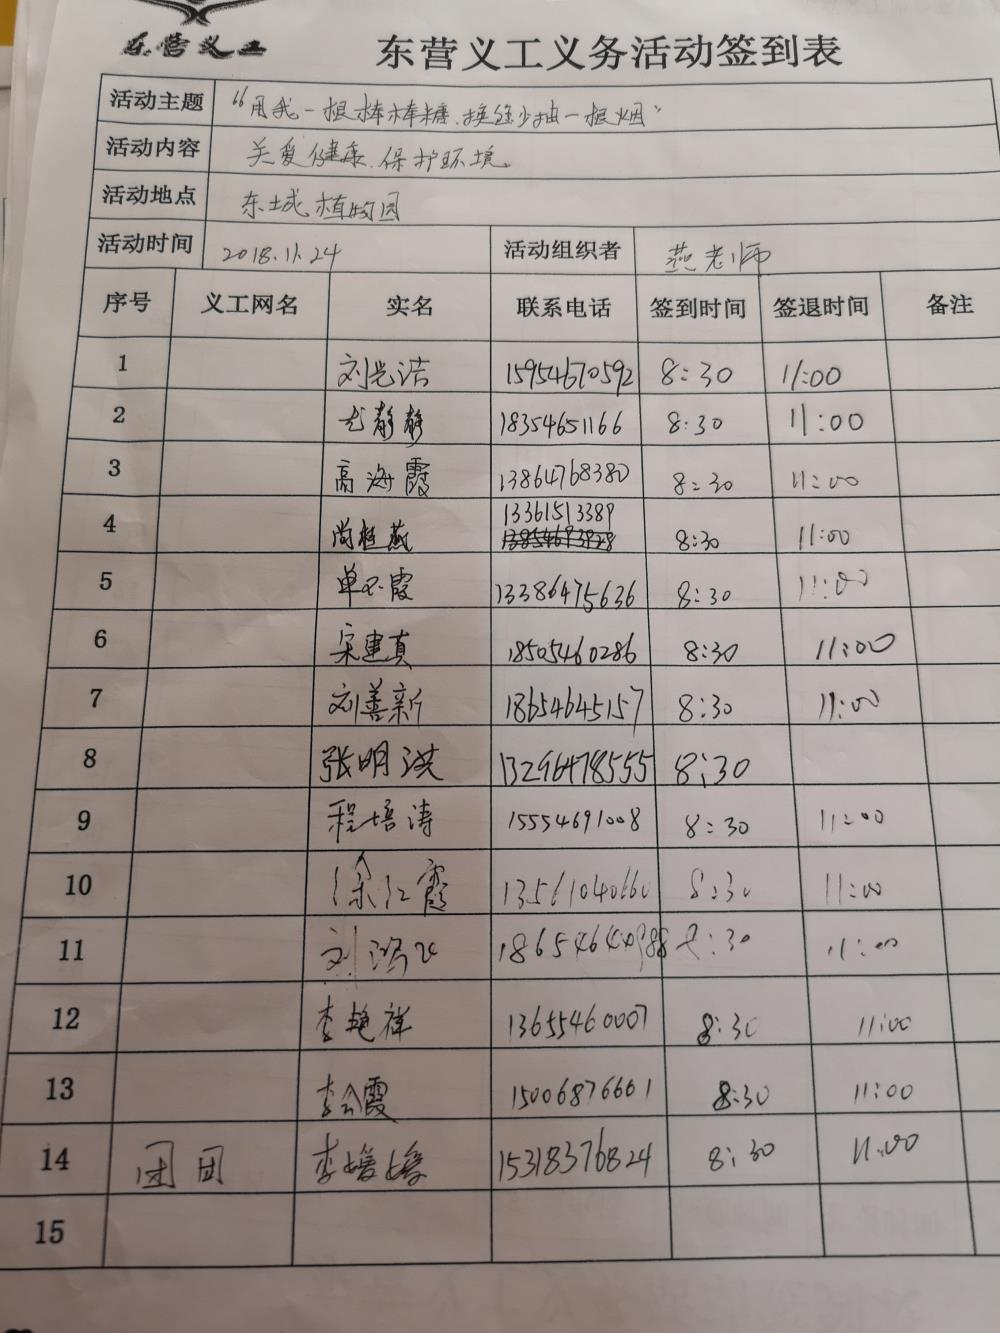 东营义工
东营义工义务活动签到表
活动主题 “用我一根棒棒糖.换您少抽一根烟”
活动内容 关爱健康.保护环境.
活动地点 东城植物园
活动时间 2018.11.24 活动组织者 燕老师
序号 义工网名 实名 联系电话 签到时间 签退时间 备注
1 刘光洁 15954670592 8:30 11:00
2 静静 18354651166 8:30 11:00
3 高海霞 13864768380 8:30 11:00
4 尚桂燕 13361513389 8:30 11:00
5 单霞 13386475636 8:30 11:00
6 宋建真 18505460286 8:30 11:00
7 刘善新 18654645157 8:30 11:00
8 张明洪 13296478555 8:30
9 程培涛 15554691008 8:30 11:00
10 徐红霞 13561040660 8:30 11:00
11 刘 8:30 11:00
12 李艳祥 13655460007 8:30 11:00
13 李会霞 15006876601 8:30 11:00
14 团团 李媛媛 15318376824 8:30 11:00
15